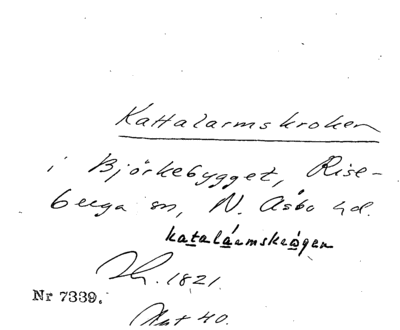 Kattalarmskroken
i Björkebygget, Rise-
berga sn, N. Åsbo hd.
katalármskrågen
Th. 1821.
Nr 7339.
Kat 40.